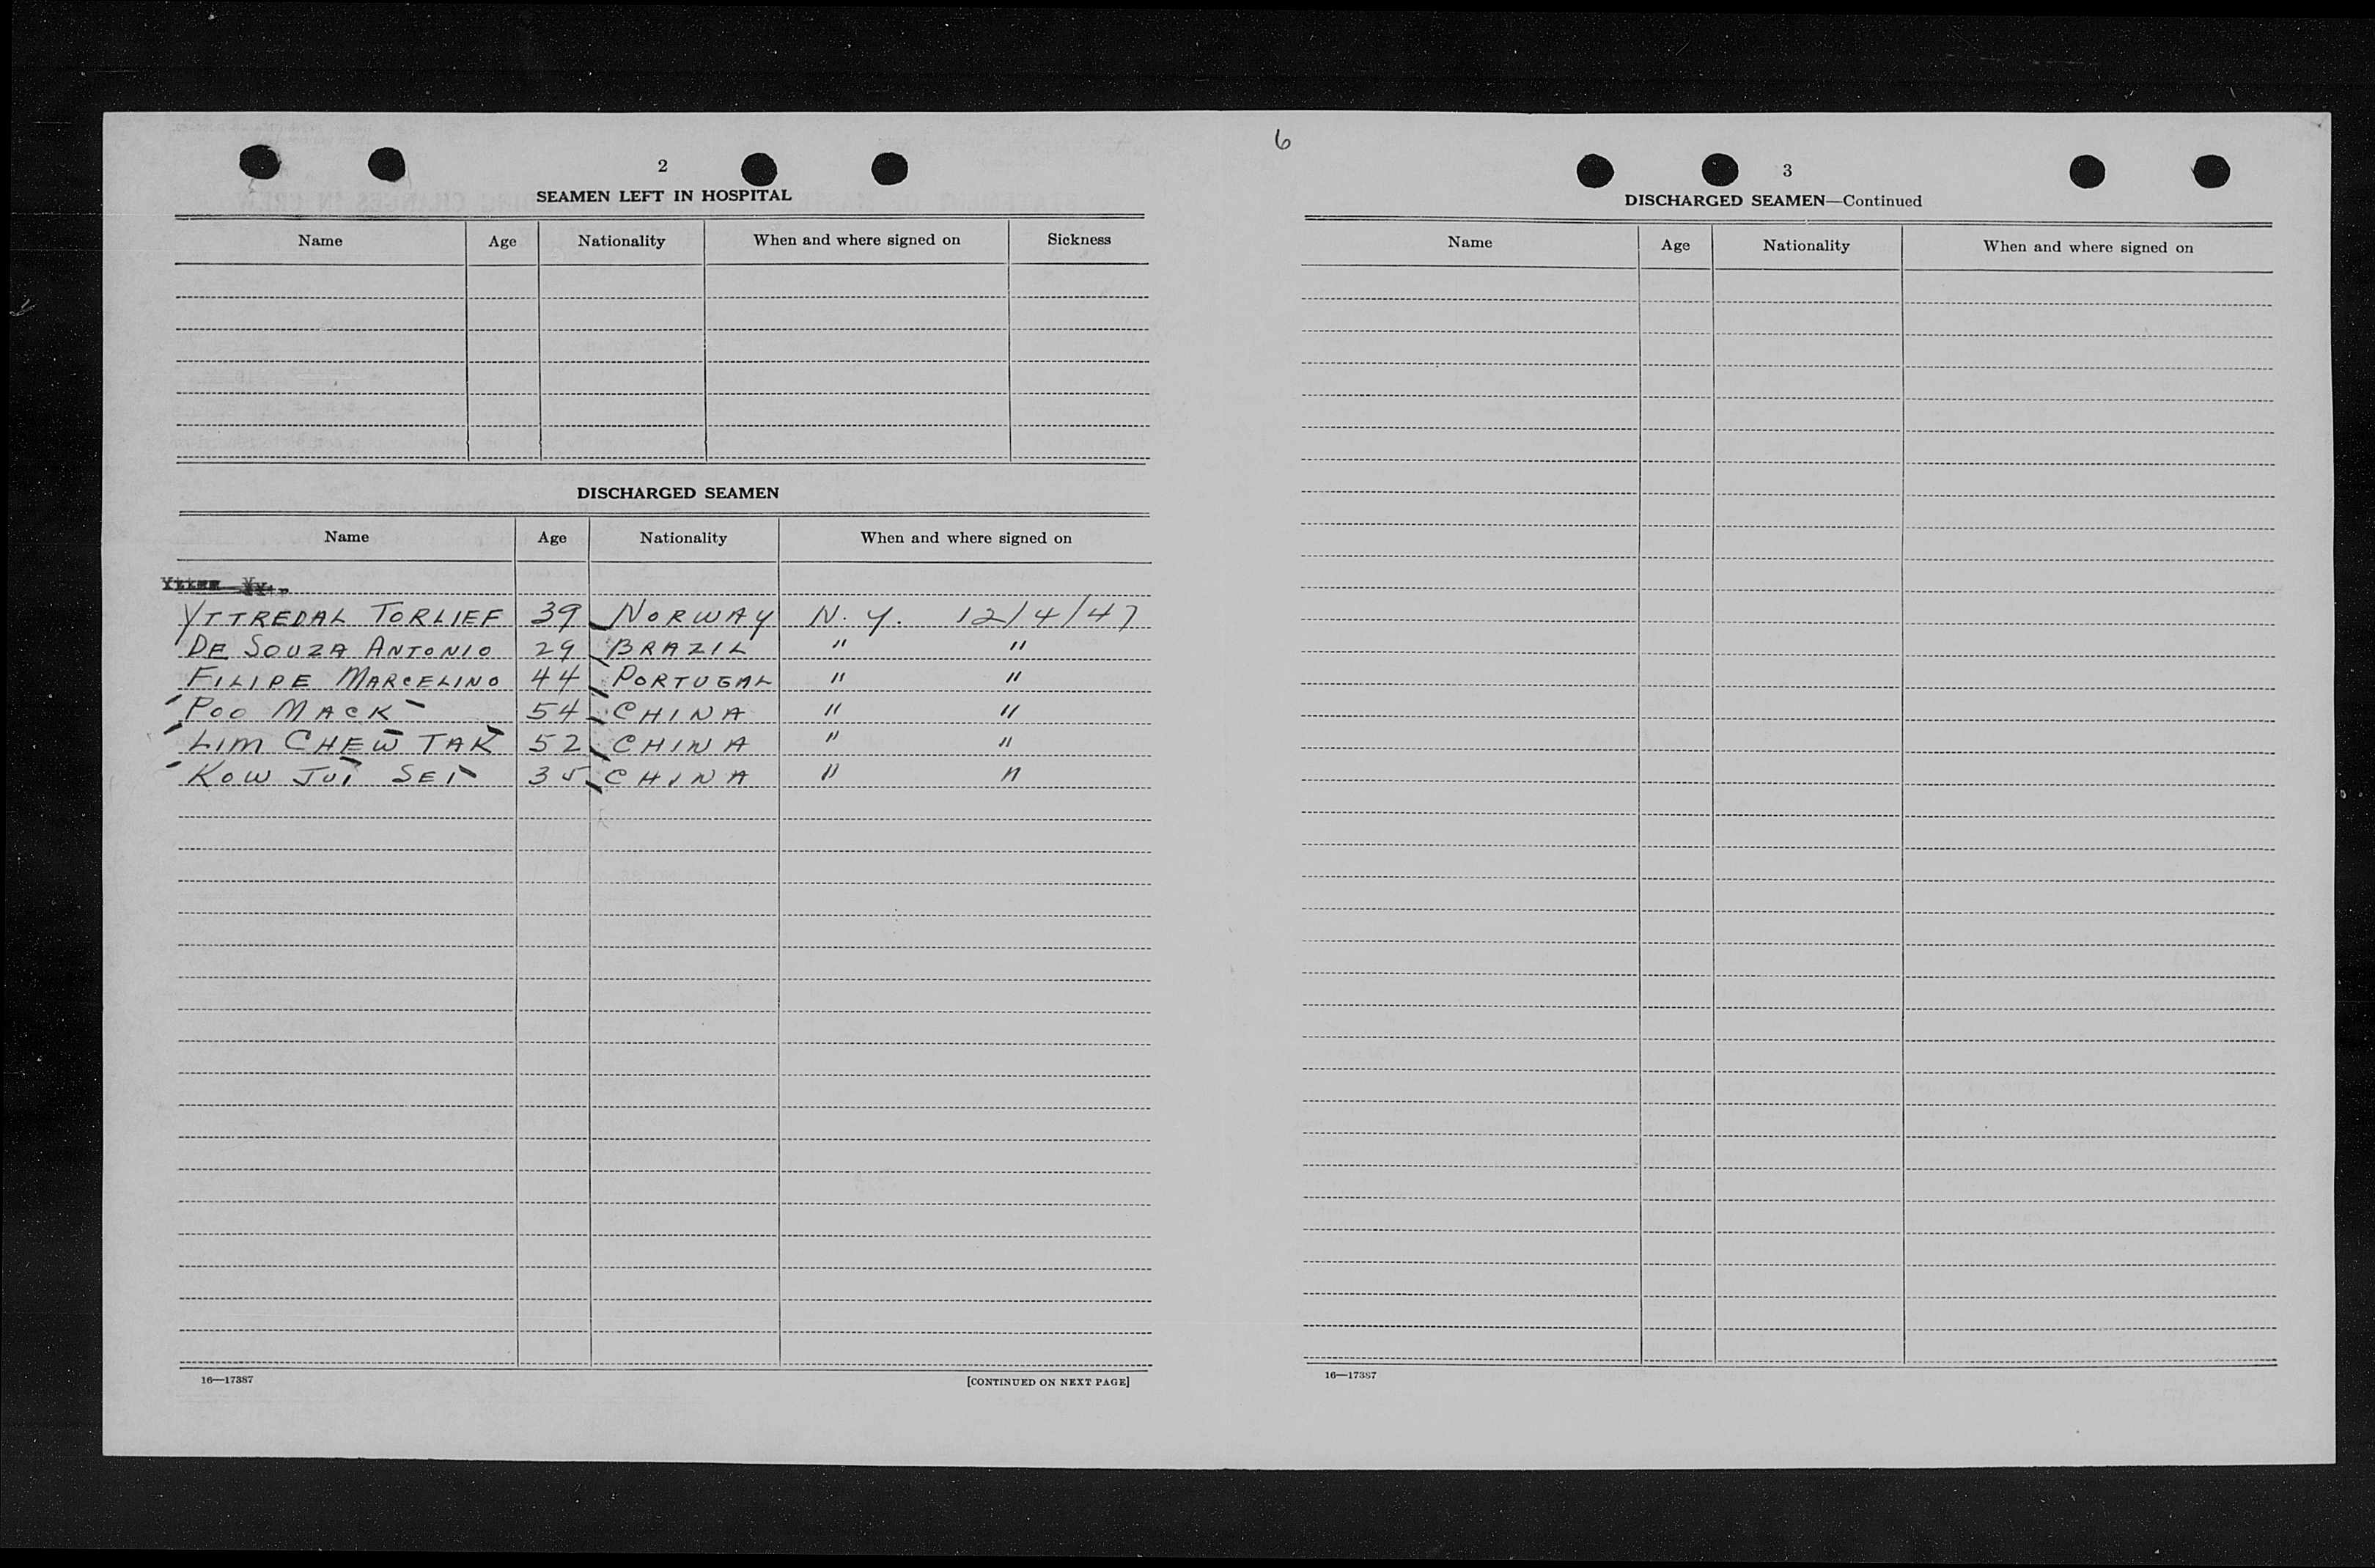 2
SEAMEN LEFT IN HOSPITAL
Name Age Nationality When and where signed on Sickness
DISCHARGED SEAMEN
Name Age Nationality When and where signed on
YTTREDAL TORLIEF 39 NORWAY N. Y. 12/4/47
DE SOUZA ANTONIO 29 BRAZIL " "
FILIPE MARCELINO 44 PORTUGAL " "
POO MACK 54 CHINA " "
LIM CHEW TAK 52 CHINA " "
KOW JUI SEI 35 CHINA " "
16—17387 [CONTINUED ON NEXT PAGE]
6
3
DISCHARGED SEAMEN—Continued
Name Age Nationality When and where signed on
16—17387